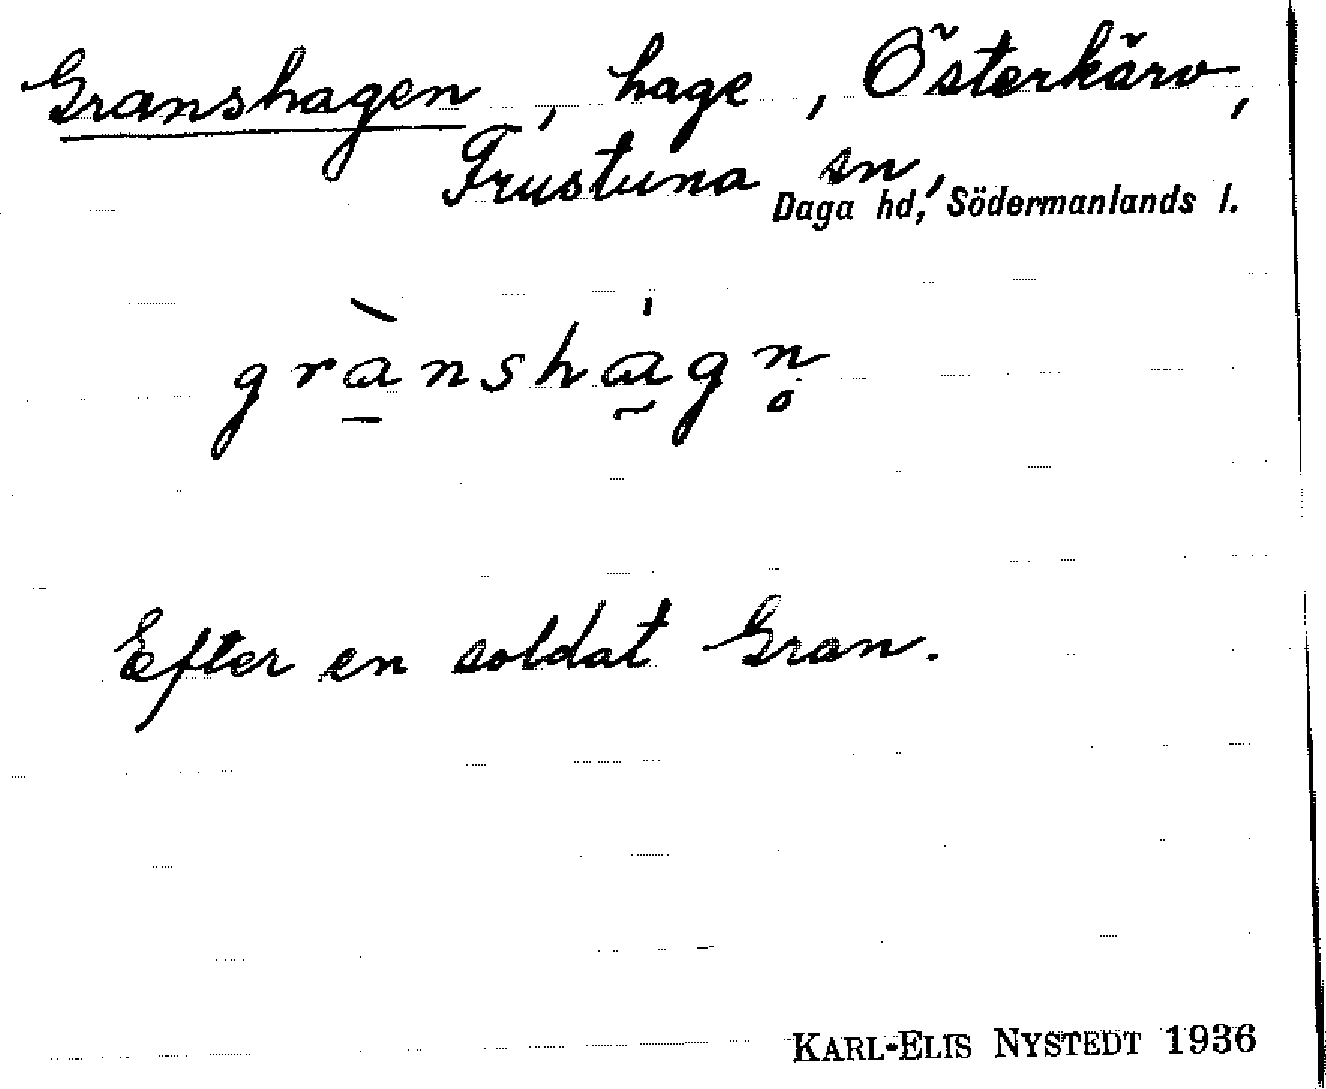 Granshagen, hage, Österkärv,
Frustuna sn,
Daga hd, Södermanlands l.
grànshágn̥
Efter en soldat Gran.
KARL-ELIS NYSTEDT 1936